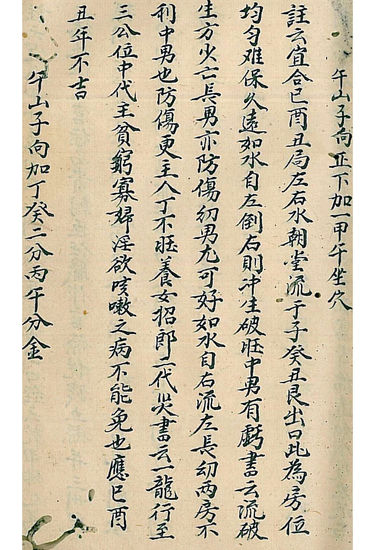 午山子向正下加一甲午坐穴
註云宜合巳酉丑局左右水朝堂流于子癸丑艮出口此為房位
均匀难保久遠如水自左倒右則冲生破旺中男有虧書云流破
生方少亡長男亦防傷幼男尤可好如水自右流左長幼两房不
利中男也防傷更主人丁不旺養女招郎一代災書云一龍行至
三公位中代主貧窮寡婦淫欲咳嗽之病不能免也應巳酉
丑年不吉
午山子向加丁癸二分丙午分金